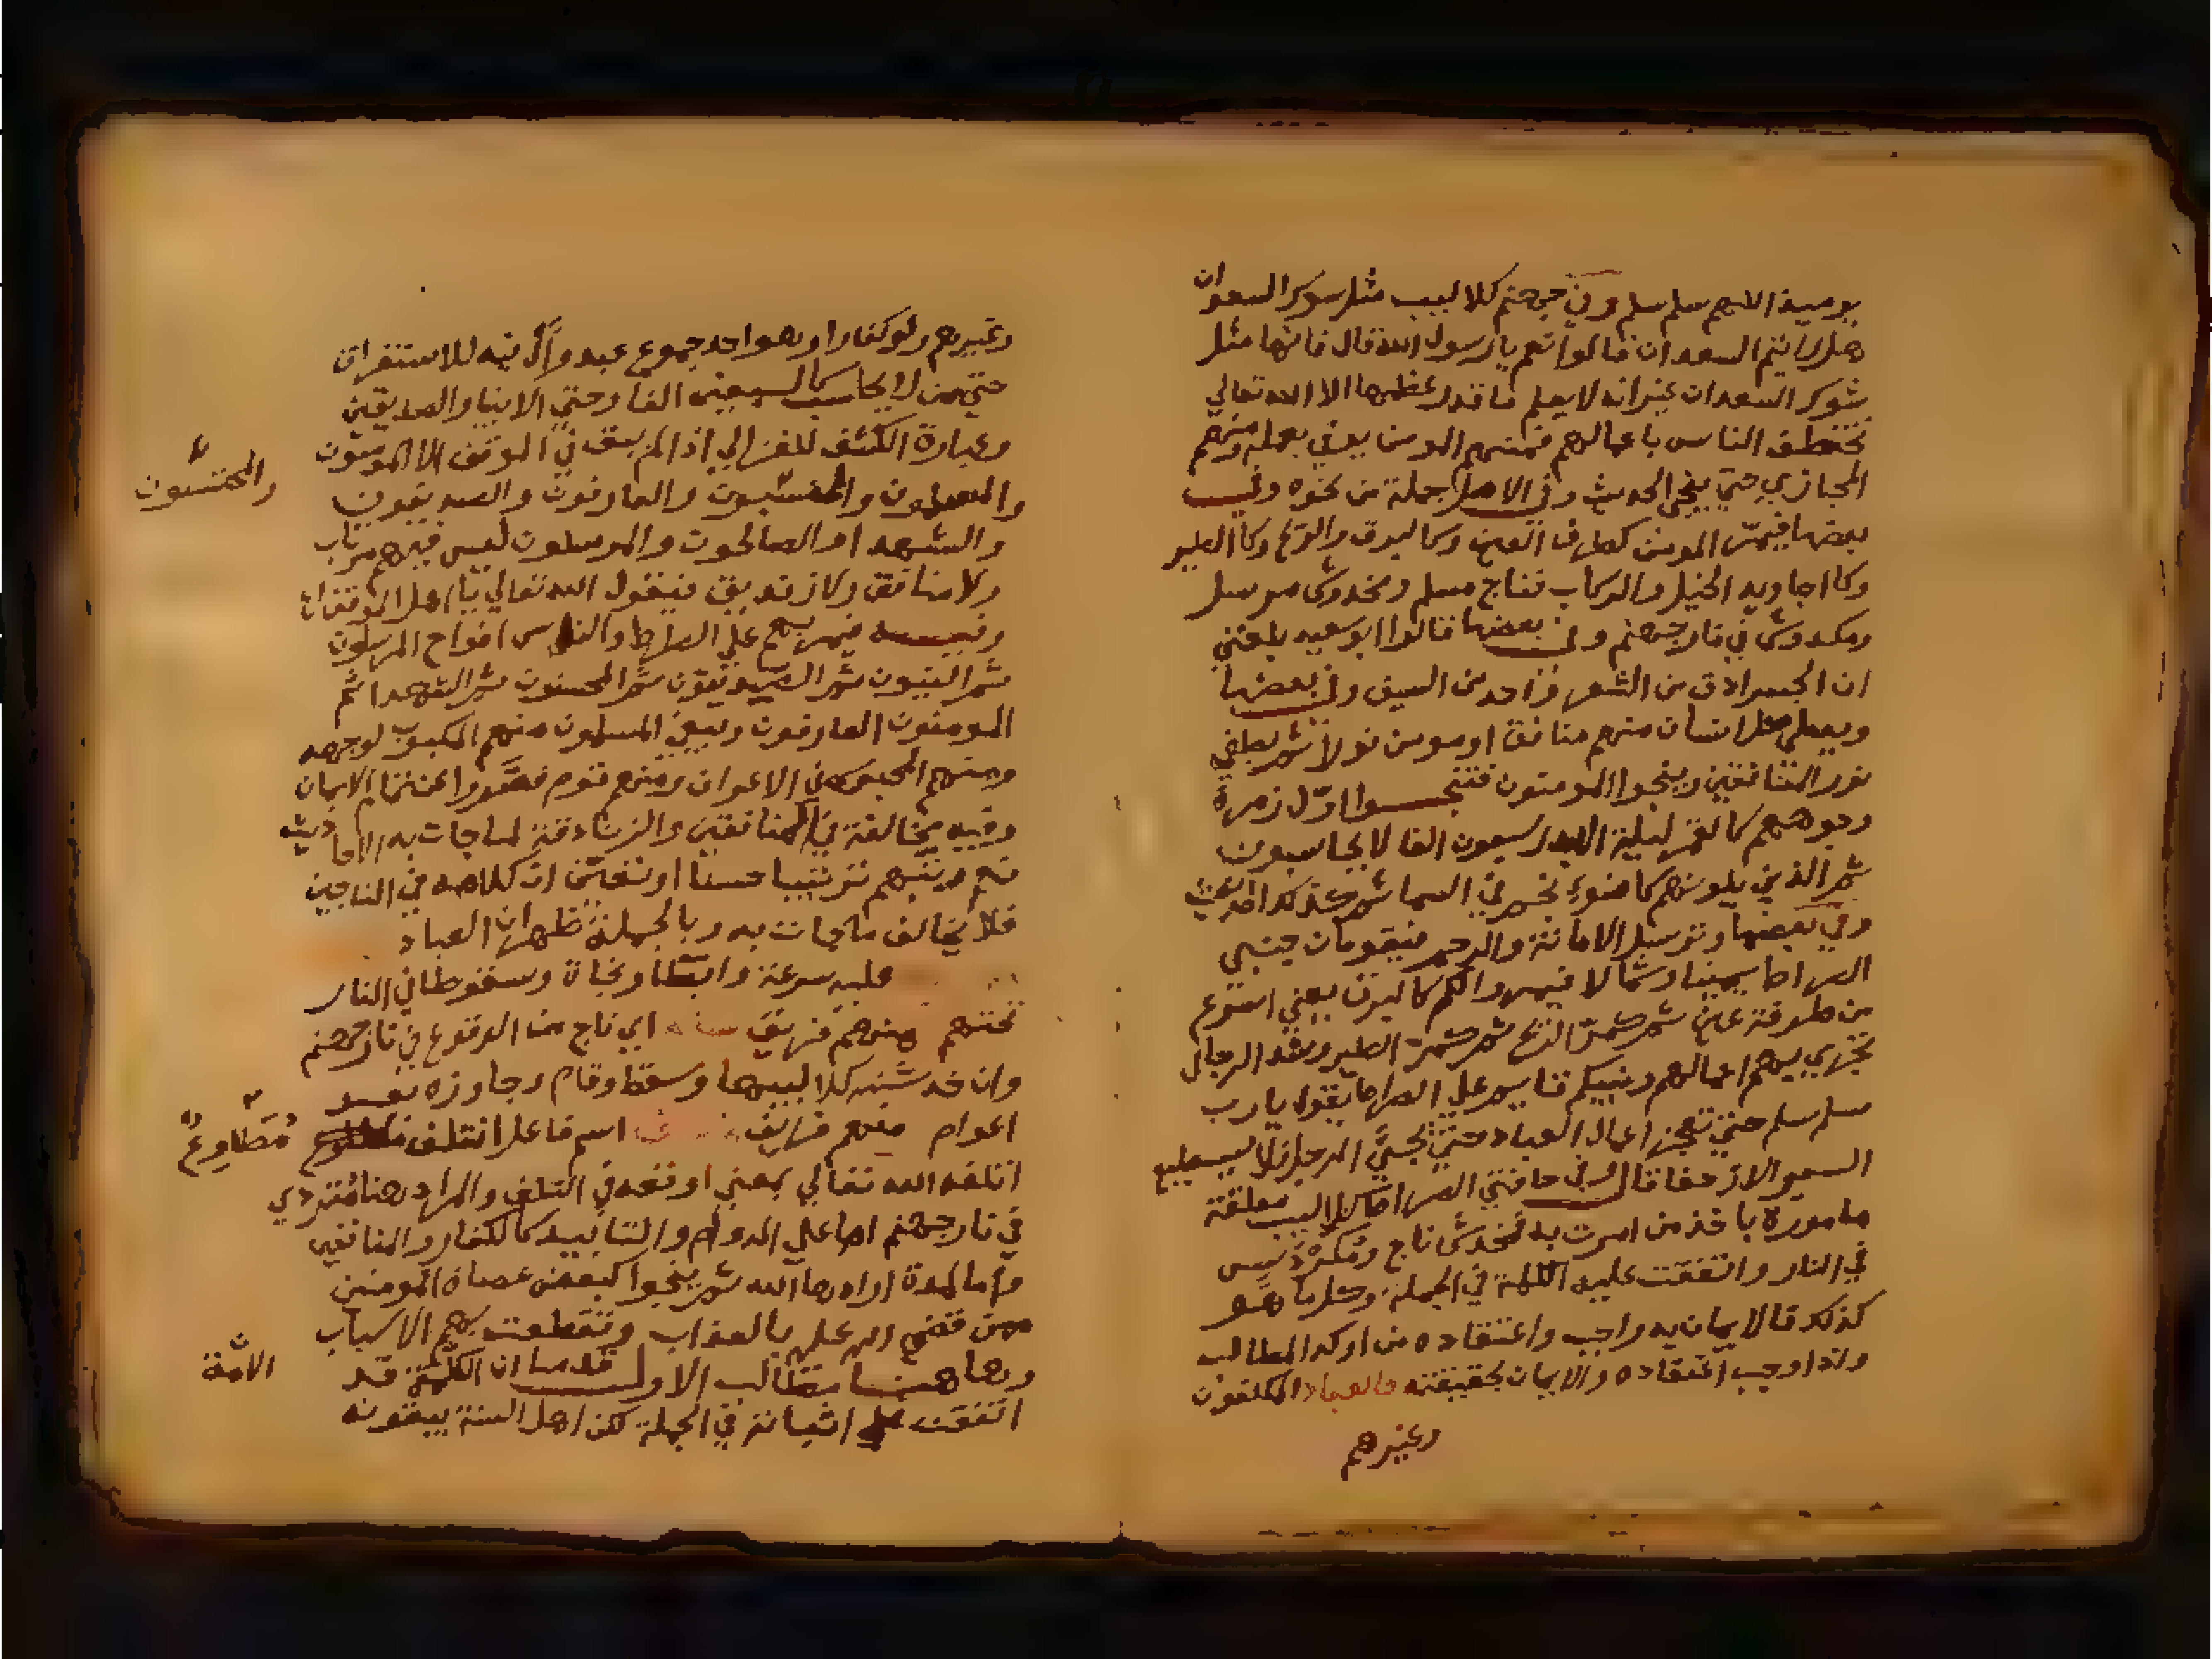 يوميذ اللهم سلم سلم وفي جهنم كلاليب مثل شوك السعدان
هل رايتم السعدان قالوا نعم يا رسول الله قال فانها مثل
شوك السعدان غير انه لا يعلم ما قدر عظمها الا الله تعالى
تخطف الناس باعمالهم فمنهم المومن بقي بعمله ومنهم
المجازي حتى ينجي الحديث وفي الاصل جملة من نحوه وفي
بعضها فيمر المومن كطرف العين وكالبرق والريح وكالطير
وكاجاويد الخيل والركاب فناج مسلم ومخدوش مرسل
ومكدوش في نار جهنم وفي بعضها قالوا ابو سعيد بلغني
ان الجسر ادق من الشعر واحد من السيف وفي بعضها
ويعطى كل انسان منهم منافق او مومن نورا ثم يطفي
نور المنافقين وينجوا المومنون فتنجوا اول زمرة
وجوههم كالقمر ليلة البدر سبعون الفا لا يحاسبون
ثم الذين يلونهم كاضوء نجم في السما ثم كذلك الحديث
وفي بعضها وترسل الامانة والرحم فيقومان جنبي
الصراط يمينا وشمالا فيمر اولكم كالبرق يعني اسرع
من طرفة عين ثم كمر الريح ثم كمر الطير وشد الرجال
تجري بهم اعمالهم ونبيكم قايم على الصراط يقول يا رب
سلم سلم حتى تعجز اعمال العباد حتى يجيء الرجل فلا يستطيع
السير الا زحفا قال وفي حافتي الصراط كلاليب معلقة
مامورة باخذ من امرت به فمخدوش ناج ومكردس
في النار واتفقت عليه الكلمة في الجملة وكل ما هو
كذلك فالايمان به واجب واعتقاده من اوكد المطالب
ولذا وجب اعتقاده والايمان بحقيقته فالعباد المكلفون
وغيرهم
وغيرهم ولو كفارا وهو احد جموع عبد وال فيه للاستغراق
حتى من لا يحاسب كالسبعين الفا وحتى الانبيا والصديقين
وعبارة الكشف للغزالي اذا لم يبق في الموقف الا المومنون
والمسلمون والمحسنون والعارفون والصديقون
والمحسنون
والشهدا والصالحون والمرسلون ليس فيهم مرتاب
ولا منافق ولا زنديق فيقول الله تعالى يا اهل الموقف
وفيه فيمر بهم على الصراط والناس افواج المرسلون
ثم النبيون ثم الصديقون ثم المحسنون ثم الشهدا ثم
المومنون العارفون ويبقى المسلمون منهم المكبوب لوجهه
ومنهم المحبوس في الاعراف ومنهم قوم قصروا عن تمام الايمان
وفيه مخالفة في المنافقين والزنادقة لما جات به الاحاديث
نعم رتبهم ترتيبا حسنا او نقول ان كلامه في الناجين
فلا يخالف ما جات به وبالجملة ظهر ان العباد
عليه سرعة وابطا ونجاة وسقوطا في النار
تحتهم فمنهم فريق اي ناج من الوقوع في نار جهنم
وان خدشته كلاليبها وسقط وقام وجاوزه بعد
اعوام منهم فريق اسم فاعل انتلف مطاوع
مطاوع
اتلفه الله تعالى بمعنى اوقعه في التلف والمراد هنا متردي
في نار جهنم اما على الدوام والتابيد كالكفار والمنافقين
واما المدة ارادها الله ثم ينجوا كبعض عصاة المومنين
ممن قضى الله عليه بالعذاب وتقطعت بهم الاسباب
وهاهنا مطالب الاول قدمنا ان الكلمة قد
الامة
اتفقت على اثباته في الجملة لكن اهل السنة يبقونه